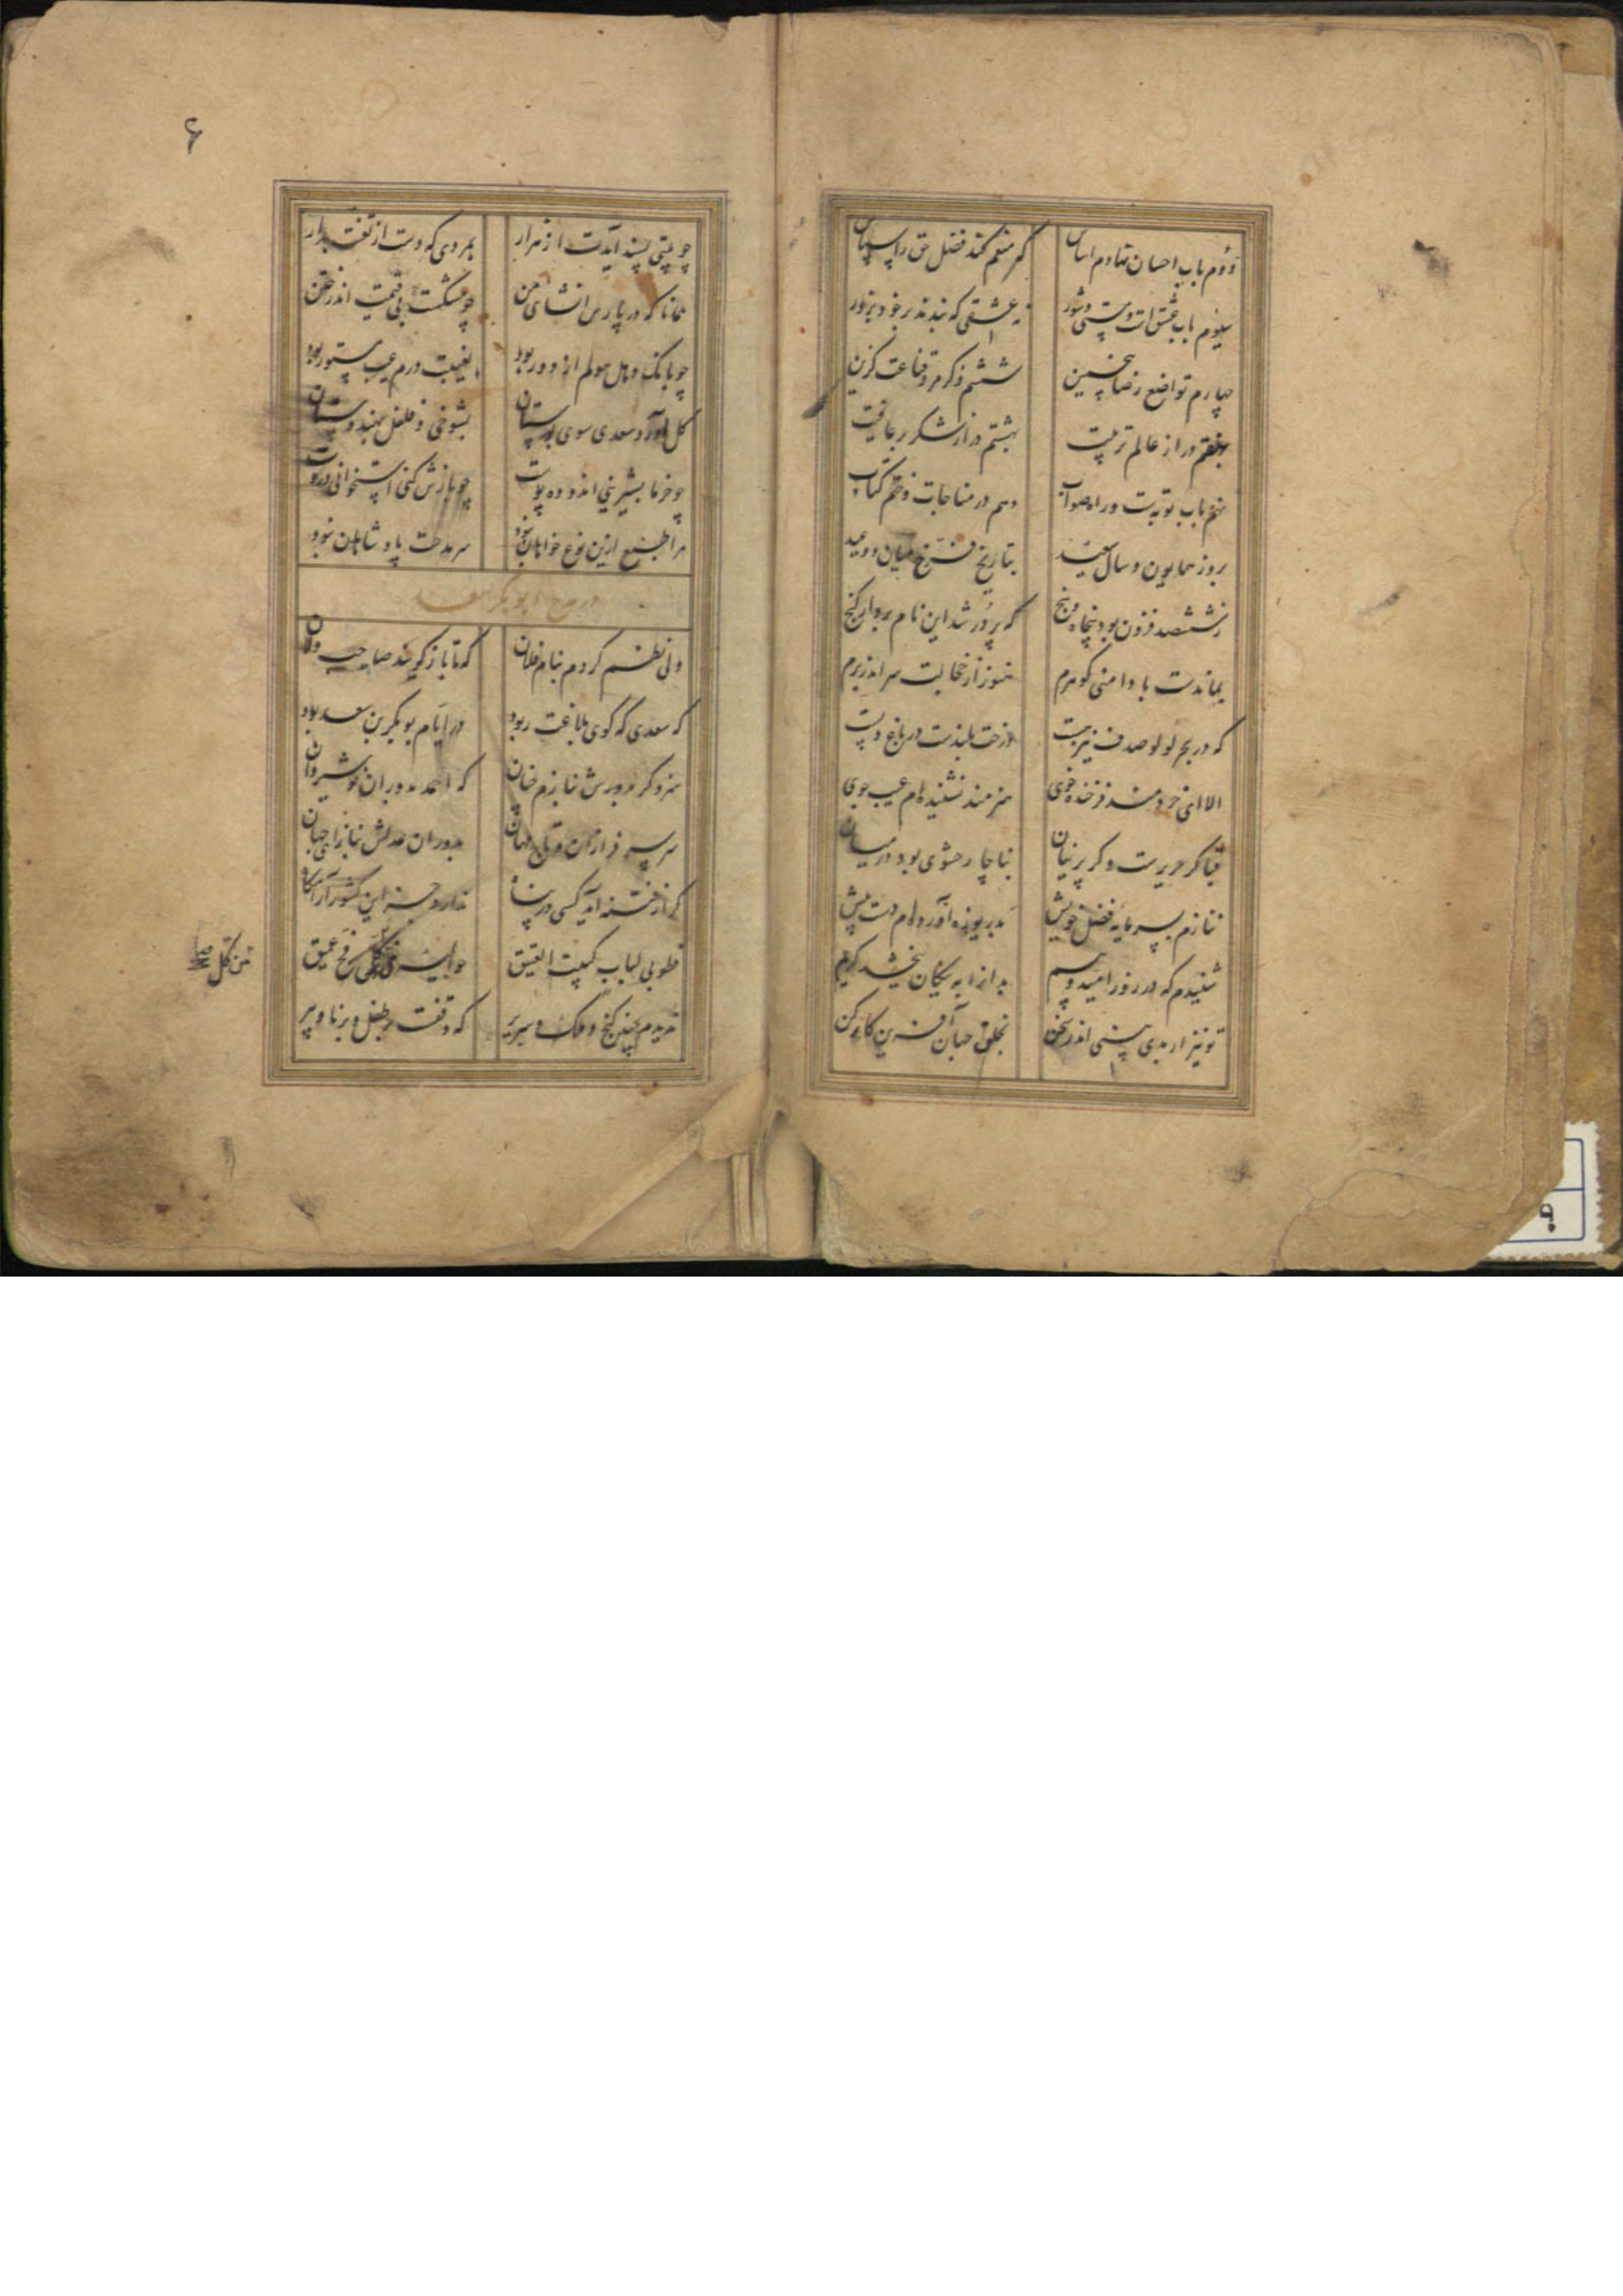 دوم باب احسان نهادم اساس که منعم کند فضل حق را سپاس
سیوم باب عشقست و مستی و شور نه عشقی که بندند بر خود بزور
چهارم تواضع رضا پنجمین ششم ذکر مرد قناعت گزین
بهفتم در از عالم تربیت بهشتم در از شکر بر عافیت
نهم باب توبه‌ست و راه صواب دهم در مناجات و ختم کتاب
بروز همایون و سال سعید بتاریخ فرخ میان دو عید
ز ششصد فزون بود پنجاه و پنج که پر در شد این نام بردار گنج
بماندست با دامنی گوهرم هنوز از خجالت سر اندر برم
که در بحر لولو صدف نیز هست درخت بلندست در باغ و پست
الا ای خردمند فرخنده خوی هنرمند نشنیده‌ام عیب جوی
قبا گر حریرست و گر پرنیان بناچار حشوی بود در میان
ننازم بسرمایه فضل خویش بدریوزه آورده‌ام دست پیش
شنیدم که در روز امید و بیم بدانرا به نیکان ببخشد کریم
تو نیز ار بدی بینی اندر سخن بخلق جهان آفرین کار کن
۶
چو بیتی پسند آیدت از هزار بمردی که دست از تعنت بدار
همانا که در پارس انشای من چو مشکست بی قیمت اندر ختن
چو بانک دهل هولم از دور بود بغیبت درم عیب مستور بود
گل آورد سعدی سوی بوستان بشوخی و فلفل بهندوستان
چو خرما بشیرینی اندوده پوست چو بازش کنی استخوانی دروست
مرا طبع ازین نوع خواهان نبود سر مدحت پادشاهان نبود
در مدح ابوبکر سعد
ولی نظم کردم بنام فلان که تا باز گویند صاحب دلان
که سعدی که گوی بلاغت ربود در ایام بوبکر بن سعد بود
سزد گر بدورش بنازم چنان که احمد بدوران نوشیروان
سر سرفرازان و تاج مهان بدوران عدلش بناز ای جهان
گر از فتنه آید کسی در پناه ندارد جز این کشور آرامگاه
فطوبی لباب کبیت العتیق حوالیه من کل فج عمیق
من کل صح
ندیدم چنین گنج و ملک و سریر که وقفست بر طفل و برنا و پیر